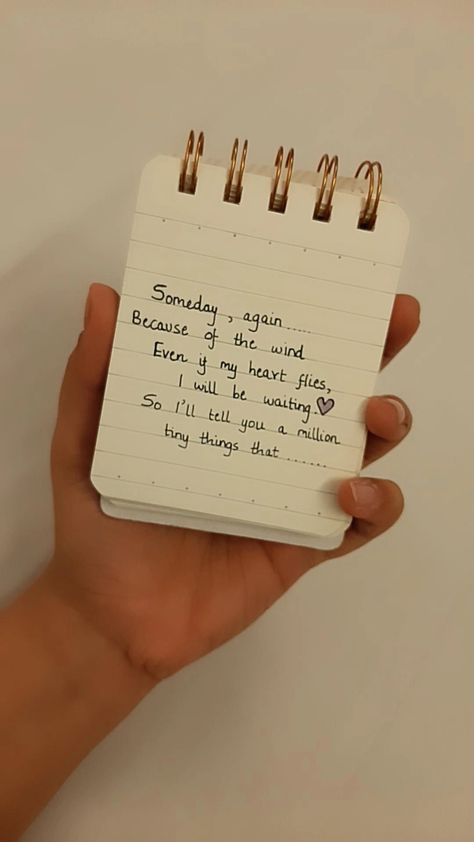 Someday , again.....
Because of the wind
Even if my heart flies,
I will be waiting.
So I'll tell you a million
tiny things that .......